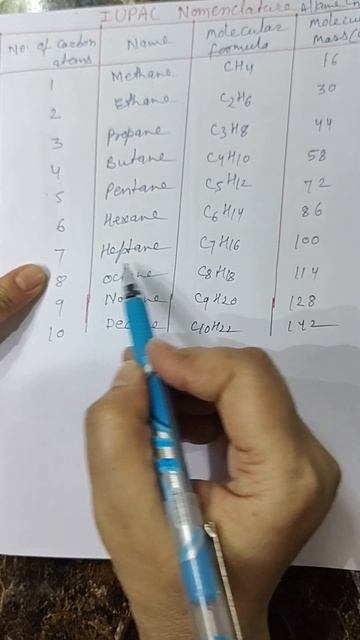 IUPAC Nomenclature Alkane
No. of Carbon atoms Name Molecular formula Molecular Mass
1 Methane CH4 16
2 Ethane C2H6 30
3 Propane C3H8 44
4 Butane C4H10 58
5 Pentane C5H12 72
6 Hexane C6H14 86
7 Heptane C7H16 100
8 C8H18 114
9 C9H20 128
10 C10H22 142